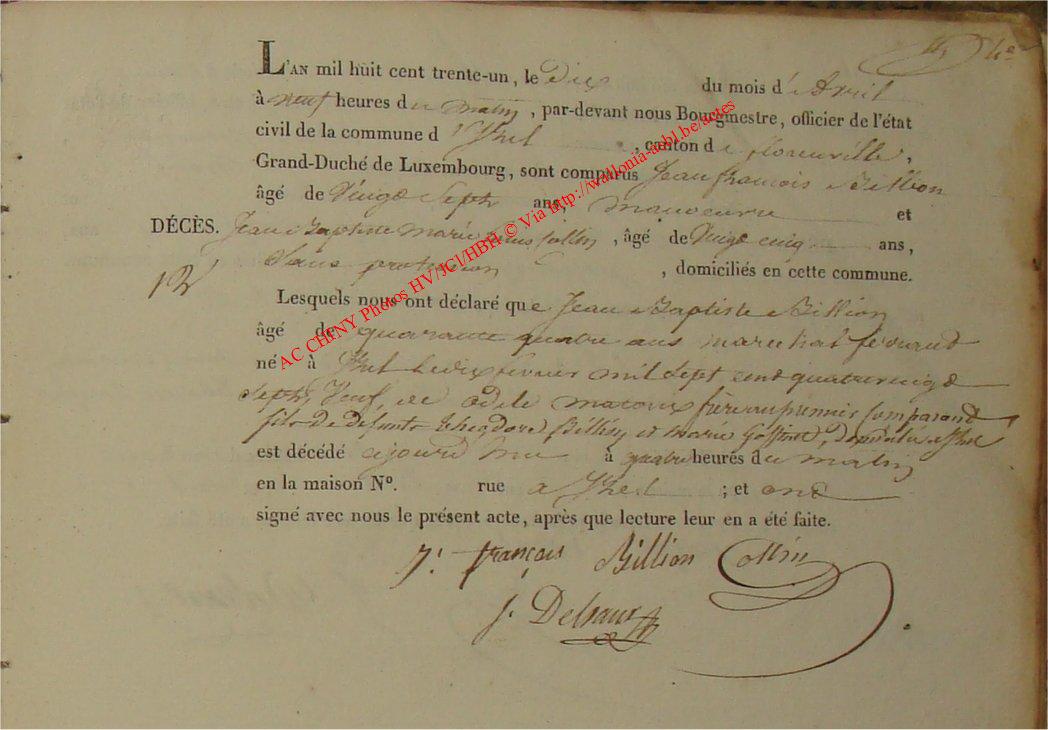 L'AN mil huit cent trente-un, le dix du mois d'Avril
à neuf heures du matin, par-devant nous Bourgmestre, officier de l'état
civil de la commune d'Izel, canton de florenville,
Grand-Duché de Luxembourg, sont comparus Jean françois Billion
âgé de Vingt Sept ans, manoeuvre et
DÉCÈS. Jean Baptiste Marie Collin, âgé de Vingt cinq ans,
Sans profession, domiciliés en cette commune.
12
Lesquels nous ont déclaré que Jean Baptiste Billion
âgé de quarante quatre ans marechal ferrant
né à Izel le dix fevrier mil Sept cent quatre vingt
Sept, Veuf de Adele frère au premier Comparant
fils de defunts theodore Billion et marie domicilié a Izel
est décédé aujourd'hui à quatre heures du matin
en la maison N°. rue a Izel ; et ont
signé avec nous le présent acte, après que lecture leur en a été faite.
J. françois Billion Collin
J.
AC CHINY Photos HV/JCl/HBH © Via http://wallonia-asbl.be/actes